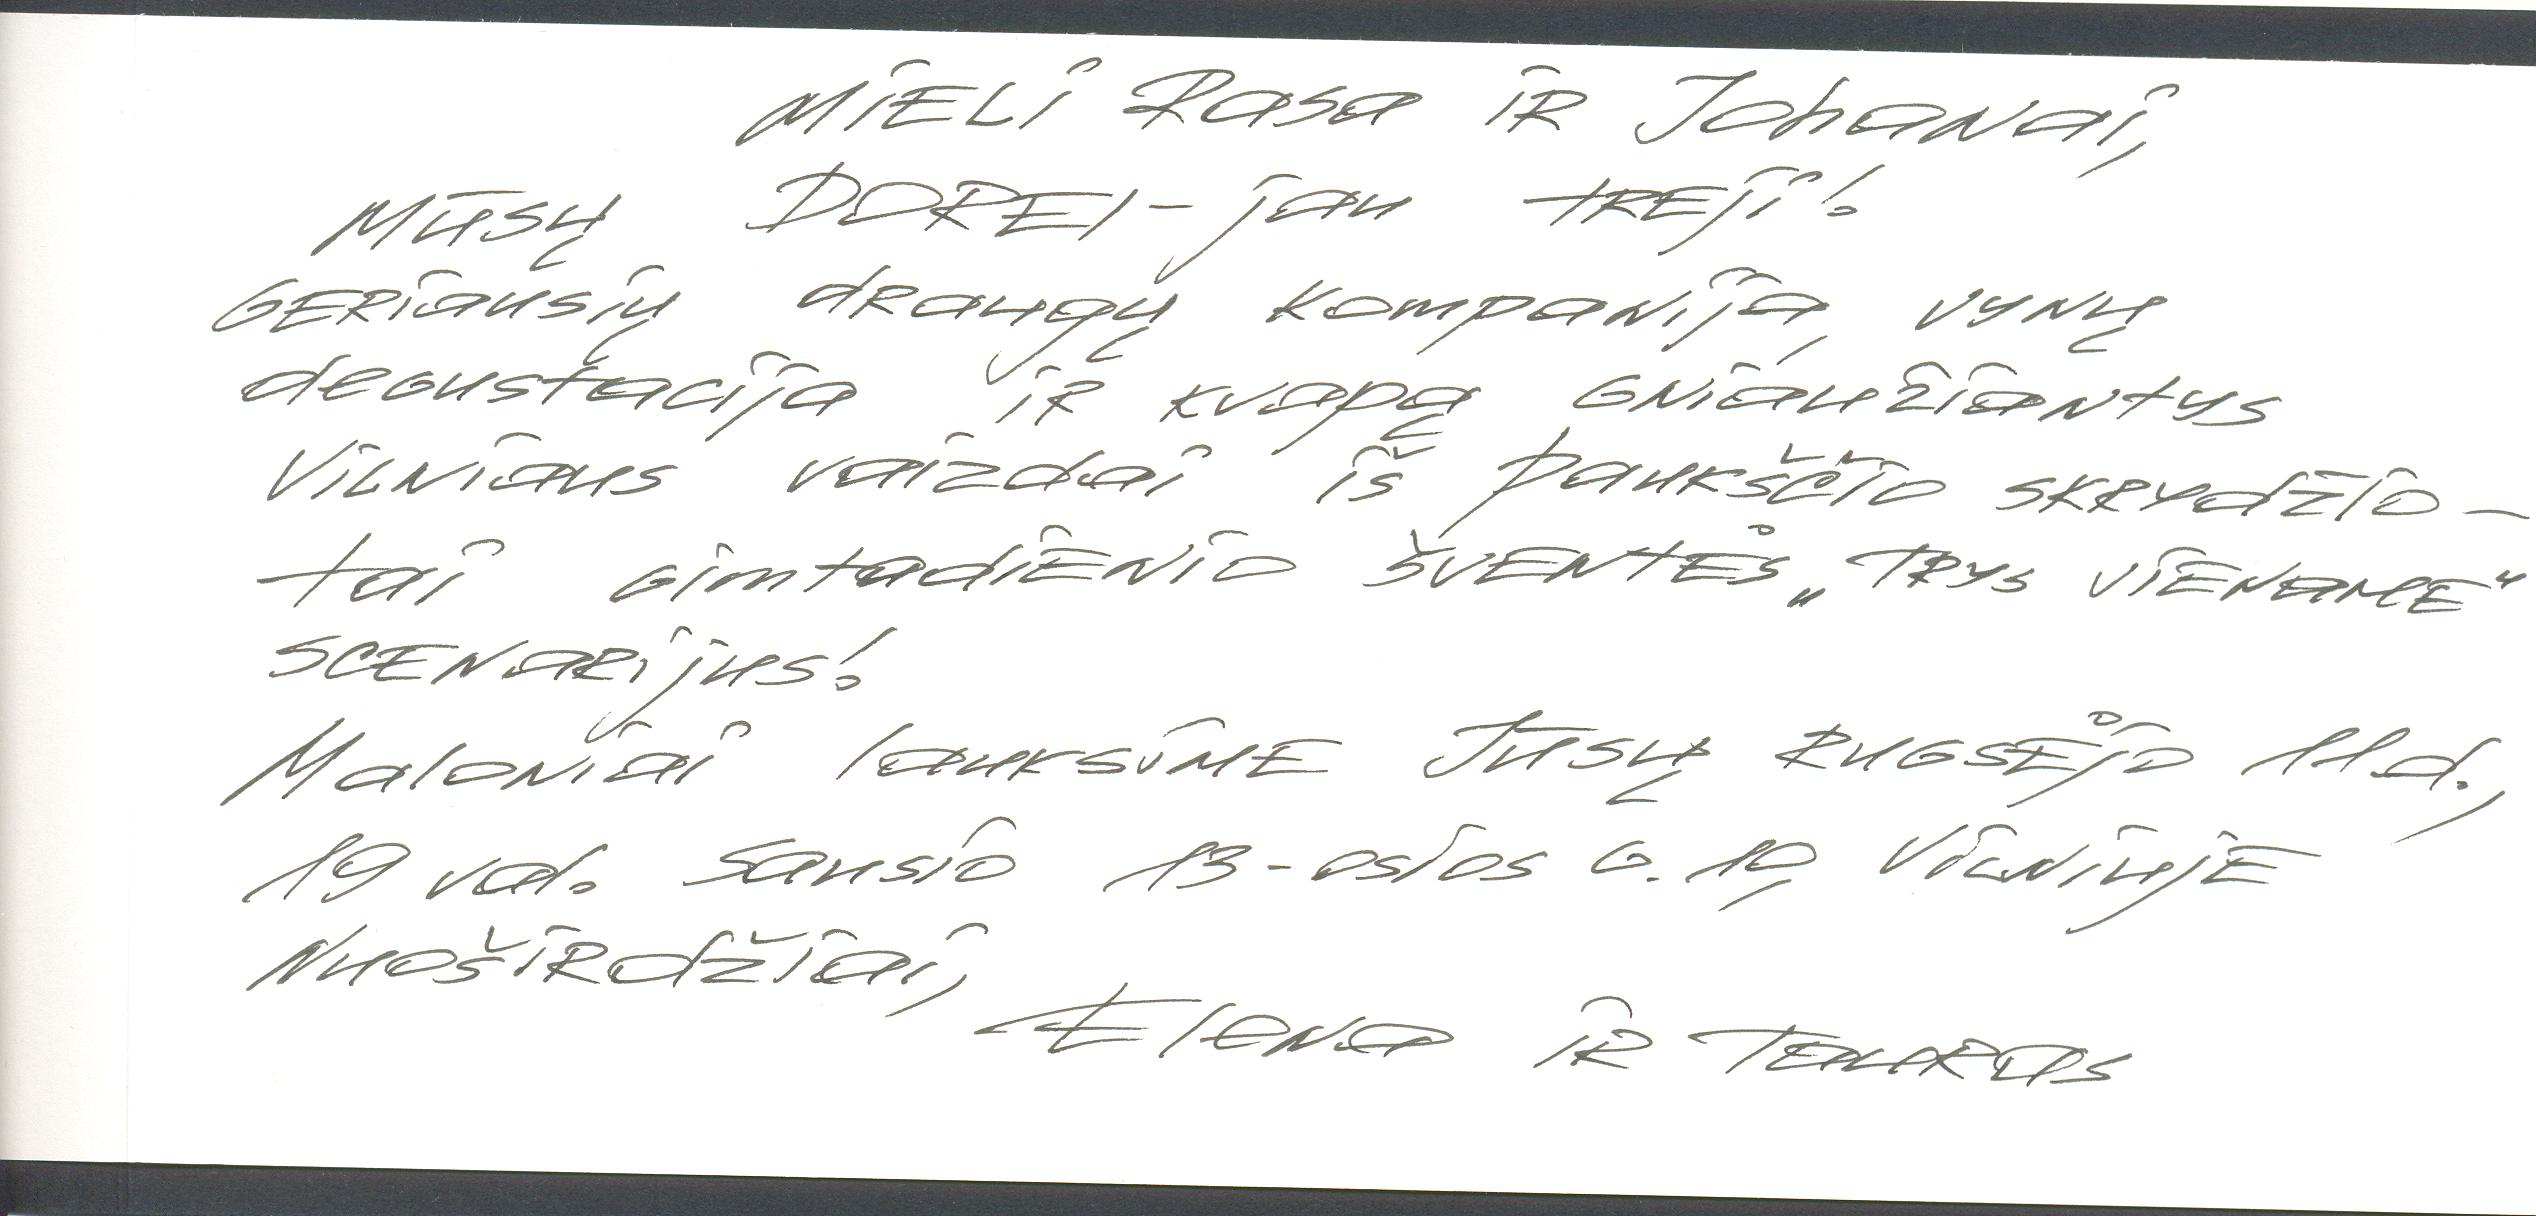 Mieli Rasa ir Johanai,
Mūsų DOREI - jau treji!
Geriausių draugų kompanija, vynų
degustacija ir kvapą gniaužiantys
Vilniaus vaizdai iš paukščio skrydžio -
tai gimtadienio šventės „Trys viename“
scenarijus!
Maloniai lauksime Jūsų rugsėjo 11 d.,
19 val. Sausio 13-osios g. 10, Vilniuje
Nuoširdžiai,
Elena ir Tauras